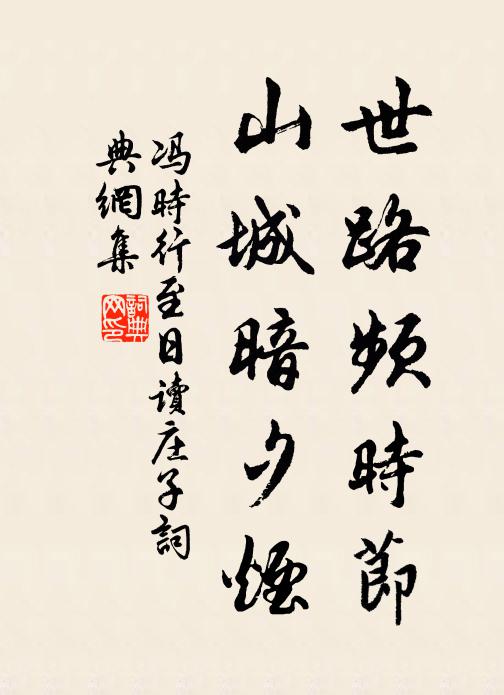 世路頻時節
山城暗夕煙
冯時行至日讀庄子詞
典網集
詞典网印